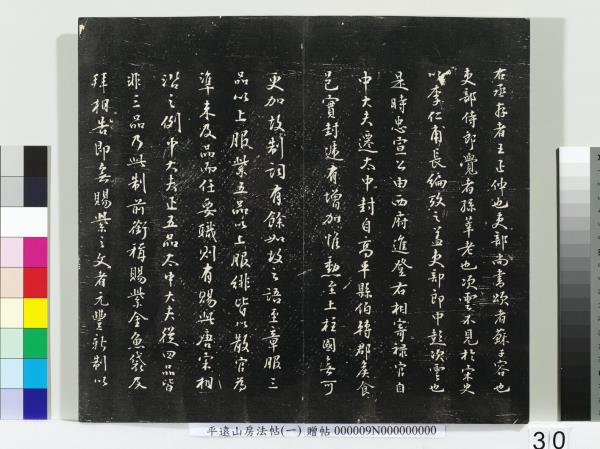 右丞存者王正仲也吏部尚書頌者蘇子容也
吏部侍郎覺者孫莘老也次雲不見於宋史
以李仁甫長編攷之蓋吏部郎中彭次雲也
是時忠宣公由西府進登右相寄祿官自
中大夫遷太中封自高平縣伯轉郡侯食
邑實封遞有增加惟勳至上柱國無可
更加故制詞有餘如故之語至章服三
品以上服紫五品以上服緋皆以散官為
準未及品而任要職則有賜此唐宋相
沿之例中大夫正五品太中大夫從四品皆
非三品乃此制前銜稱賜紫金魚袋及
拜相告即無賜紫之文者元豐新制以
平遠山房法帖(一) 贈帖 000009N000000000
30